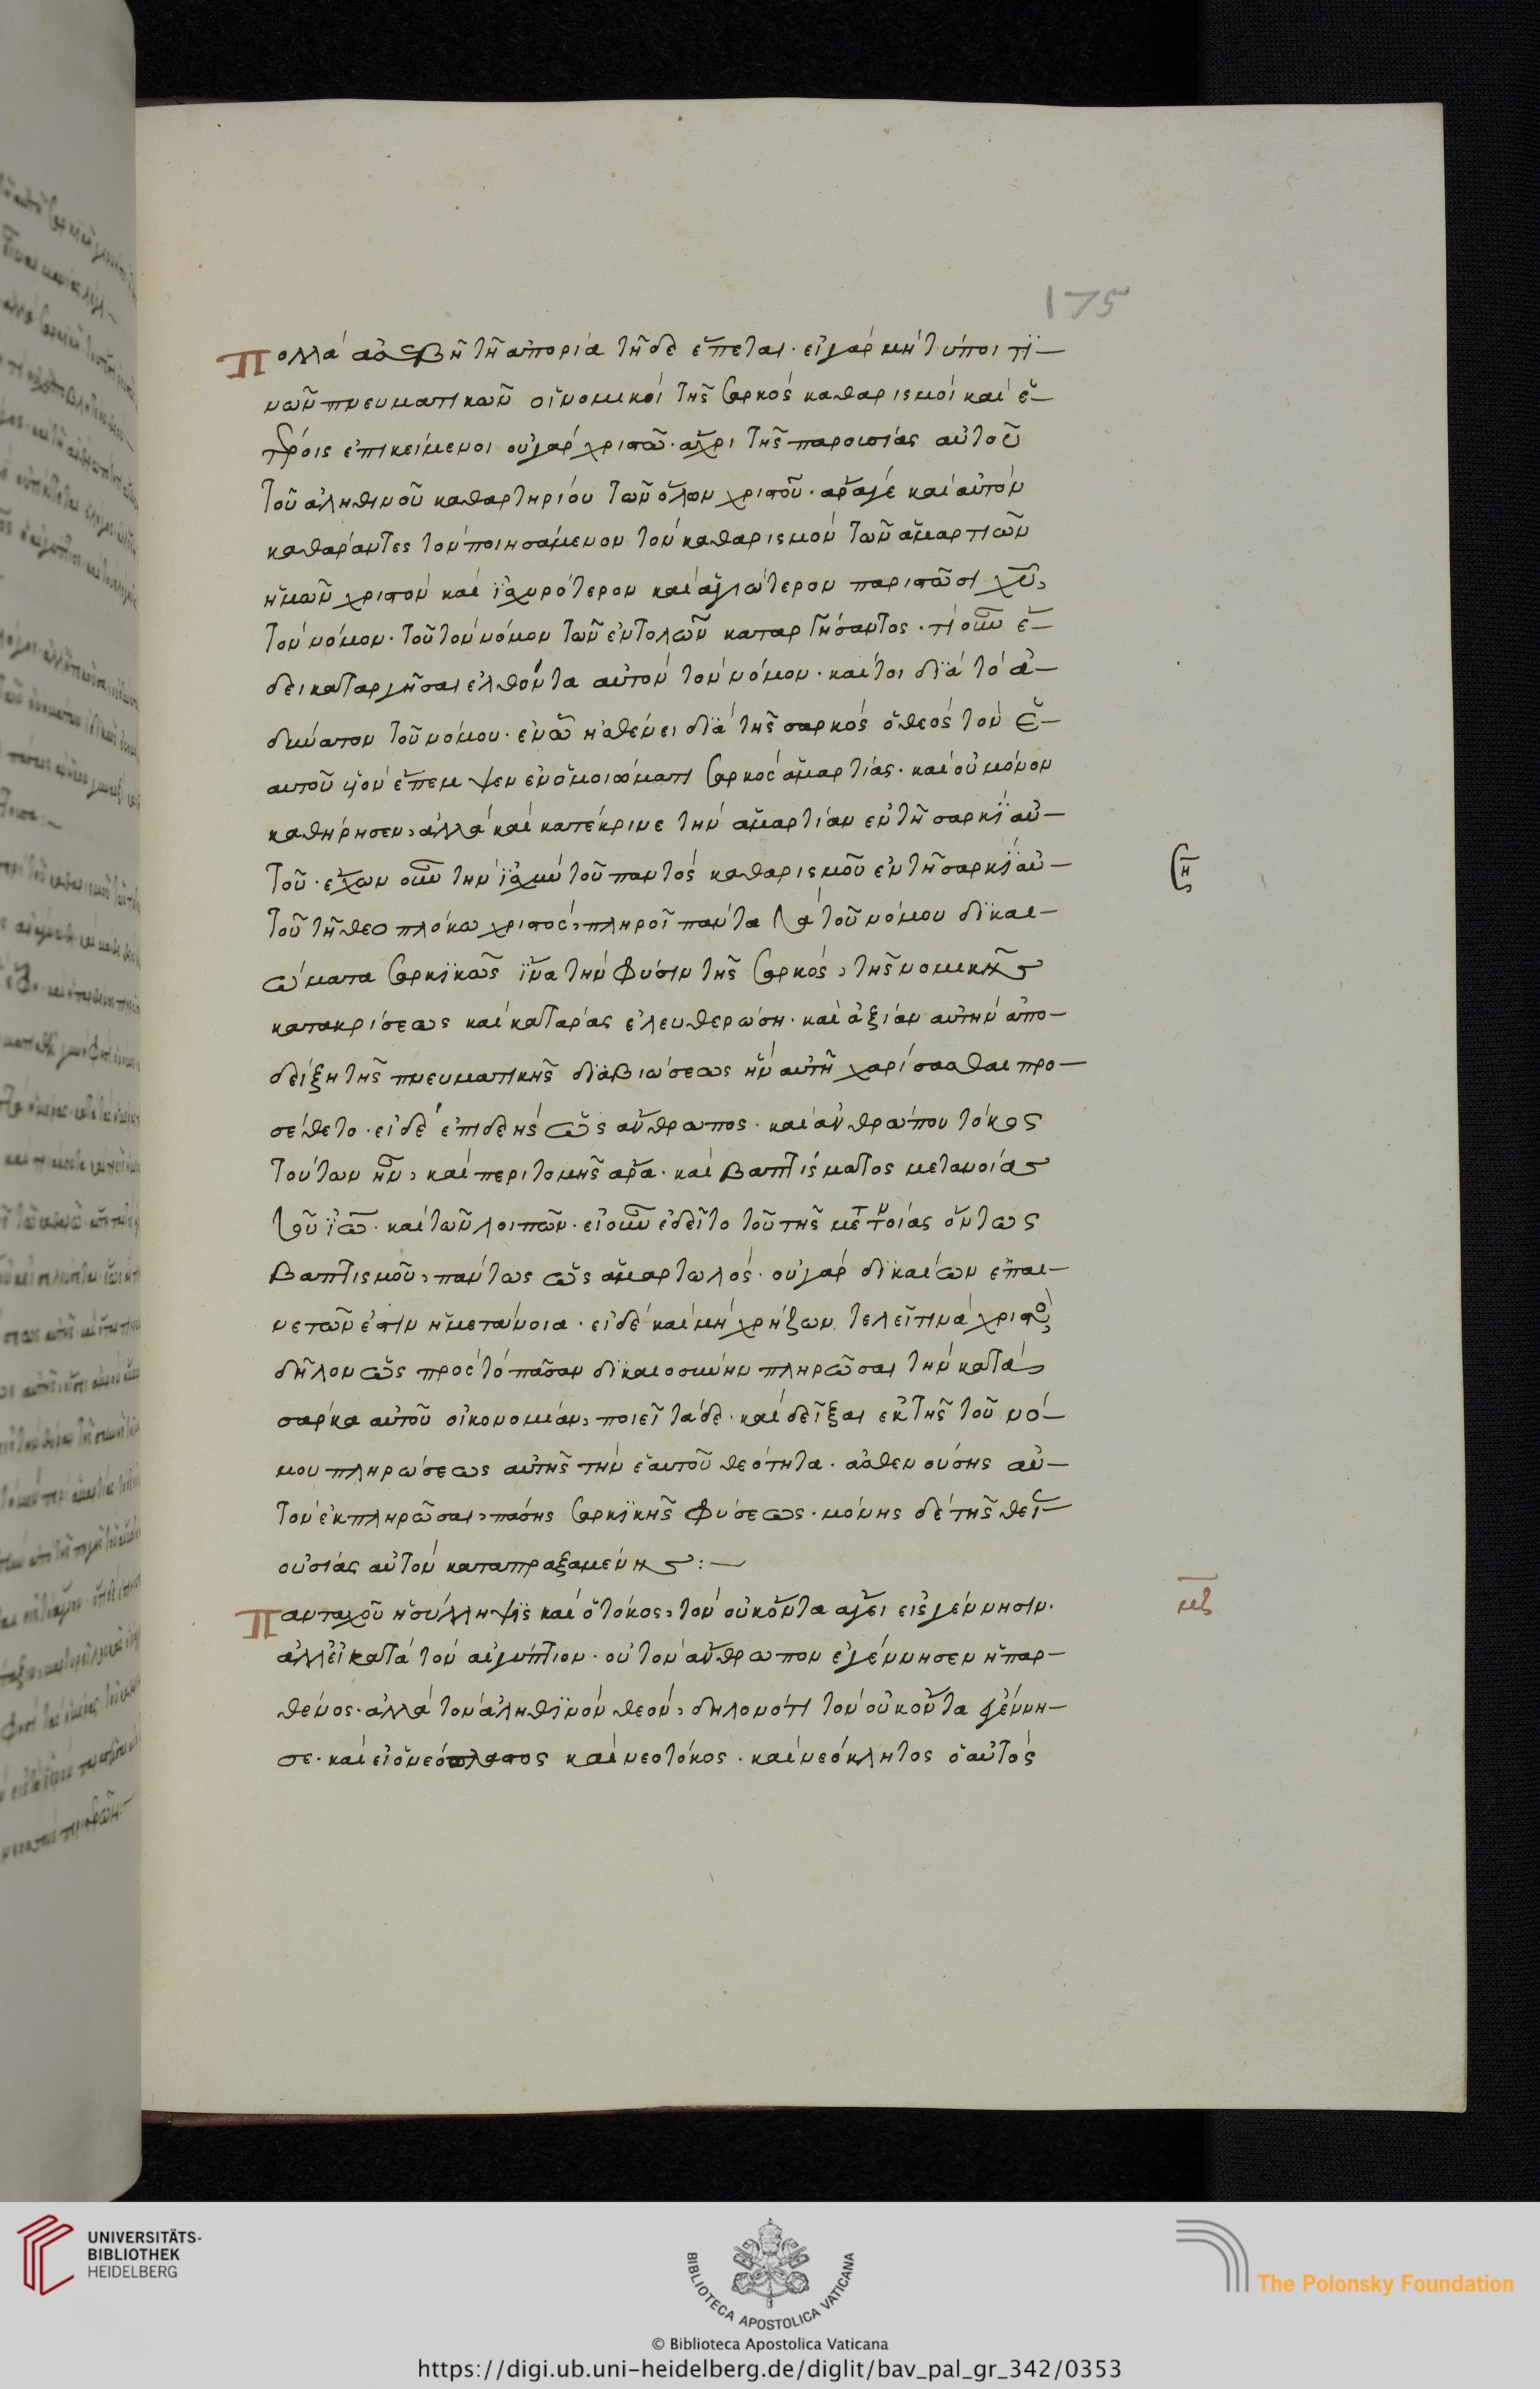 175
Πολλὰ ἀσεβῆ τῆ ἀπορία τῆδε ἕπεται· εἰ γὰρ μὴ τύποι τϊ-
νῶν πνευματικῶν οἱ νομικοὶ τῆς σαρκὸς καθαρισμοὶ καὶ ἑ-
τέροις ἐπικείμενοι οὐ γὰρ χριστῶ· ἄχρι τῆς παρουσίας αὐτοῦ
τοῦ ἀληθινοῦ καθαρτηρίου τῶν ὅλων χριστοῦ· ἄραγε καὶ αὐτὸν
καθάραντες τὸν ποιησάμενον τὸν καθαρισμὸν τῶν ἁμαρτιῶν
ἡμῶν χριστὸν καὶ ἰσχυρότερον καὶ ἁγιώτερον παριστῶσι χυ,
τὸν νόμον· τοῦ τὸν νόμον τῶν ἐντολῶν καταργήσαντος· τί οὖν ἔ-
δει καταργῆσαι ἐλθόντα αὐτὸν τὸν νόμον· καίτοι διὰ τὸ ἀ-
δύνατον τοῦ νόμου· ἐν ῶ ἠσθένει διὰ τῆς σαρκὸς ὁ θεὸς τὸν ἑ-
αυτοῦ υἱὸν ἔπεμψεν ἐν ὁμοιώματι σαρκὸς ἁμαρτίας· καὶ οὐ μόνον
καθήρησεν, ἀλλὰ καὶ κατέκρινε τὴν ἁμαρτίαν ἐν τῆ σαρκὶ αὐ-
τοῦ· ἔχων οὖν τὴν ἰσχὺν τοῦ παντὸς καθαρισμοῦ ἐν τῆ σαρκὶ αὐ-
τοῦ τῆ θεοπλόκω χριστός, πληροῖ πάντα τὰ τοῦ νόμου δικαι-
ώματα σαρκικῶς ἵνα τὴν φύσιν τῆς σαρκός, τῆς νομικῆς
κατακρίσεως καὶ κατάρας ἐλευθερώση· καὶ ἀξίαν αὐτὴν ἀπο-
δείξη τῆς πνευματικῆς διαβιώσεως ἣν αὐτῆ χαρίσασθαι προ-
σέθετο· εἰ δὲ ἐπιδεὴς ὡς ἄνθρωπος· καὶ ἀνθρώπου τόκος
τούτων ἦν, καὶ περιτομῆς ἄρα· καὶ βαπτίσματος μετανοίας
τοῦ ἰω· καὶ τῶν λοιπῶν· εἰ οὖν ἐδεῖτο τοῦ τῆς μετανοίας ὄντως
βαπτισμοῦ, πάντως ὡς ἁμαρτωλός· οὐ γὰρ δικαίων ἐπαι-
νετῶν ἐστιν ἡ μετάνοια· εἰ δὲ καὶ μὴ χρήζων τελεῖ τινὰ χριστὸς
δῆλον ὡς πρὸς τὸ πᾶσαν δικαιοσύνην πληρῶσαι τὴν κατὰ
σάρκα αὐτοῦ οἰκονομίαν, ποιεῖ τάδε· καὶ δεῖξαι ἐκ τῆς τοῦ νό-
μου πληρώσεως αὐτῆς τὴν ἑαυτοῦ θεότητα· ἀσθενούσης αὐ-
τὸν ἐκπληρῶσαι, πάσης σαρκικῆς φύσεως· μόνης δὲ τῆς θεί-
οὐσίας αὐτὸν καταπραξαμένης :—
Πανταχοῦ ἡ σύλληψις καὶ ὁ τόκος, τὸν οὐκ ὄντα ἄγει εἰς γέννησιν·
ἀλλ' εἰ κατὰ τὸν αἰγύπτιον· οὐ τὸν ἄνθρωπον ἐγέννησεν ἡ παρ-
θένος· ἀλλὰ τὸν ἀληθινὸν θεόν, δηλονότι τὸν οὐκ ὄντα γέννη-
σε· καὶ εἰ ὁ νεόπλαστος καὶ νεοτόκος· καὶ νεόκλητος ὁ αὐτὸς
UNIVERSITÄTS-
BIBLIOTHEK
HEIDELBERG
BIBLIOTECA APOSTOLICA VATICANA
The Polonsky Foundation
© Biblioteca Apostolica Vaticana
https://digi.ub.uni-heidelberg.de/diglit/bav_pal_gr_342/0353